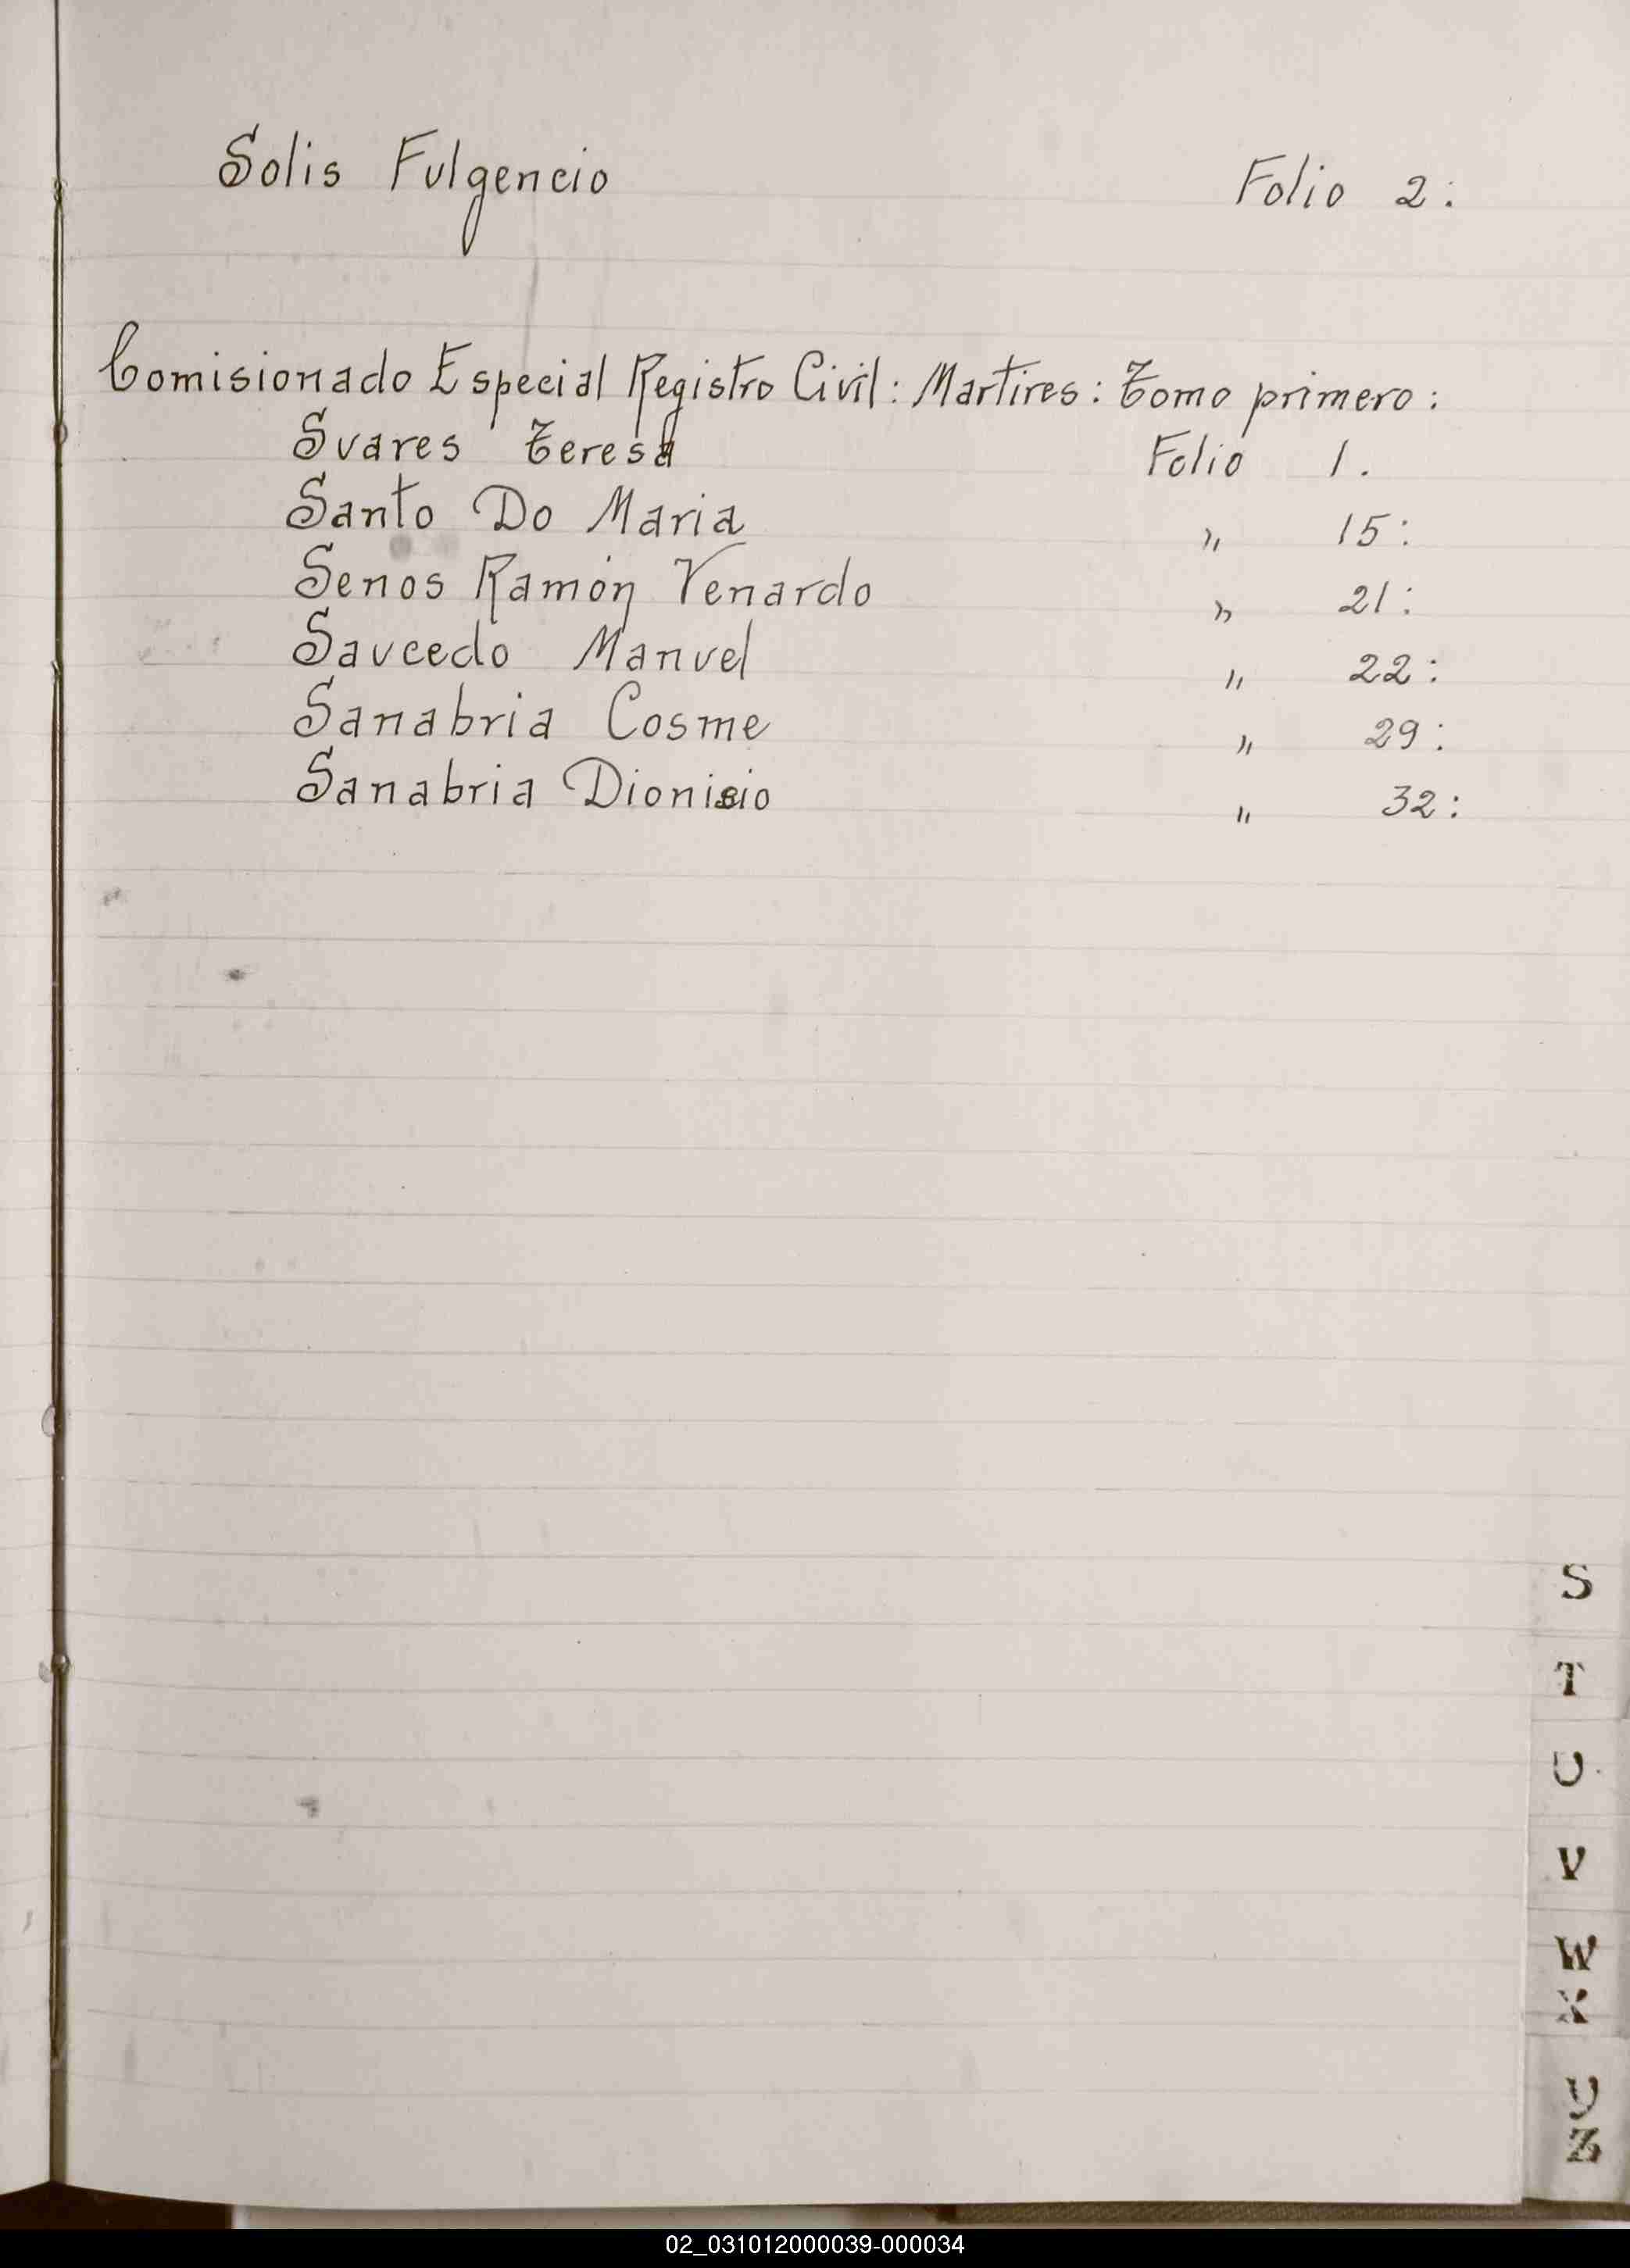 Solis Fulgencio Folio 2:
Comisionado Especial Registro Civil: Martires: Tomo primero:
Suares Teresa Folio 1.
Santo Do Maria " 15:
Senos Ramón Venardo " 21:
Saucedo Manuel " 22:
Sanabria Cosme " 29:
Sanabria Dionisio " 32:
S
T
U
V
W
X
Y
Z
02_031012000039-000034